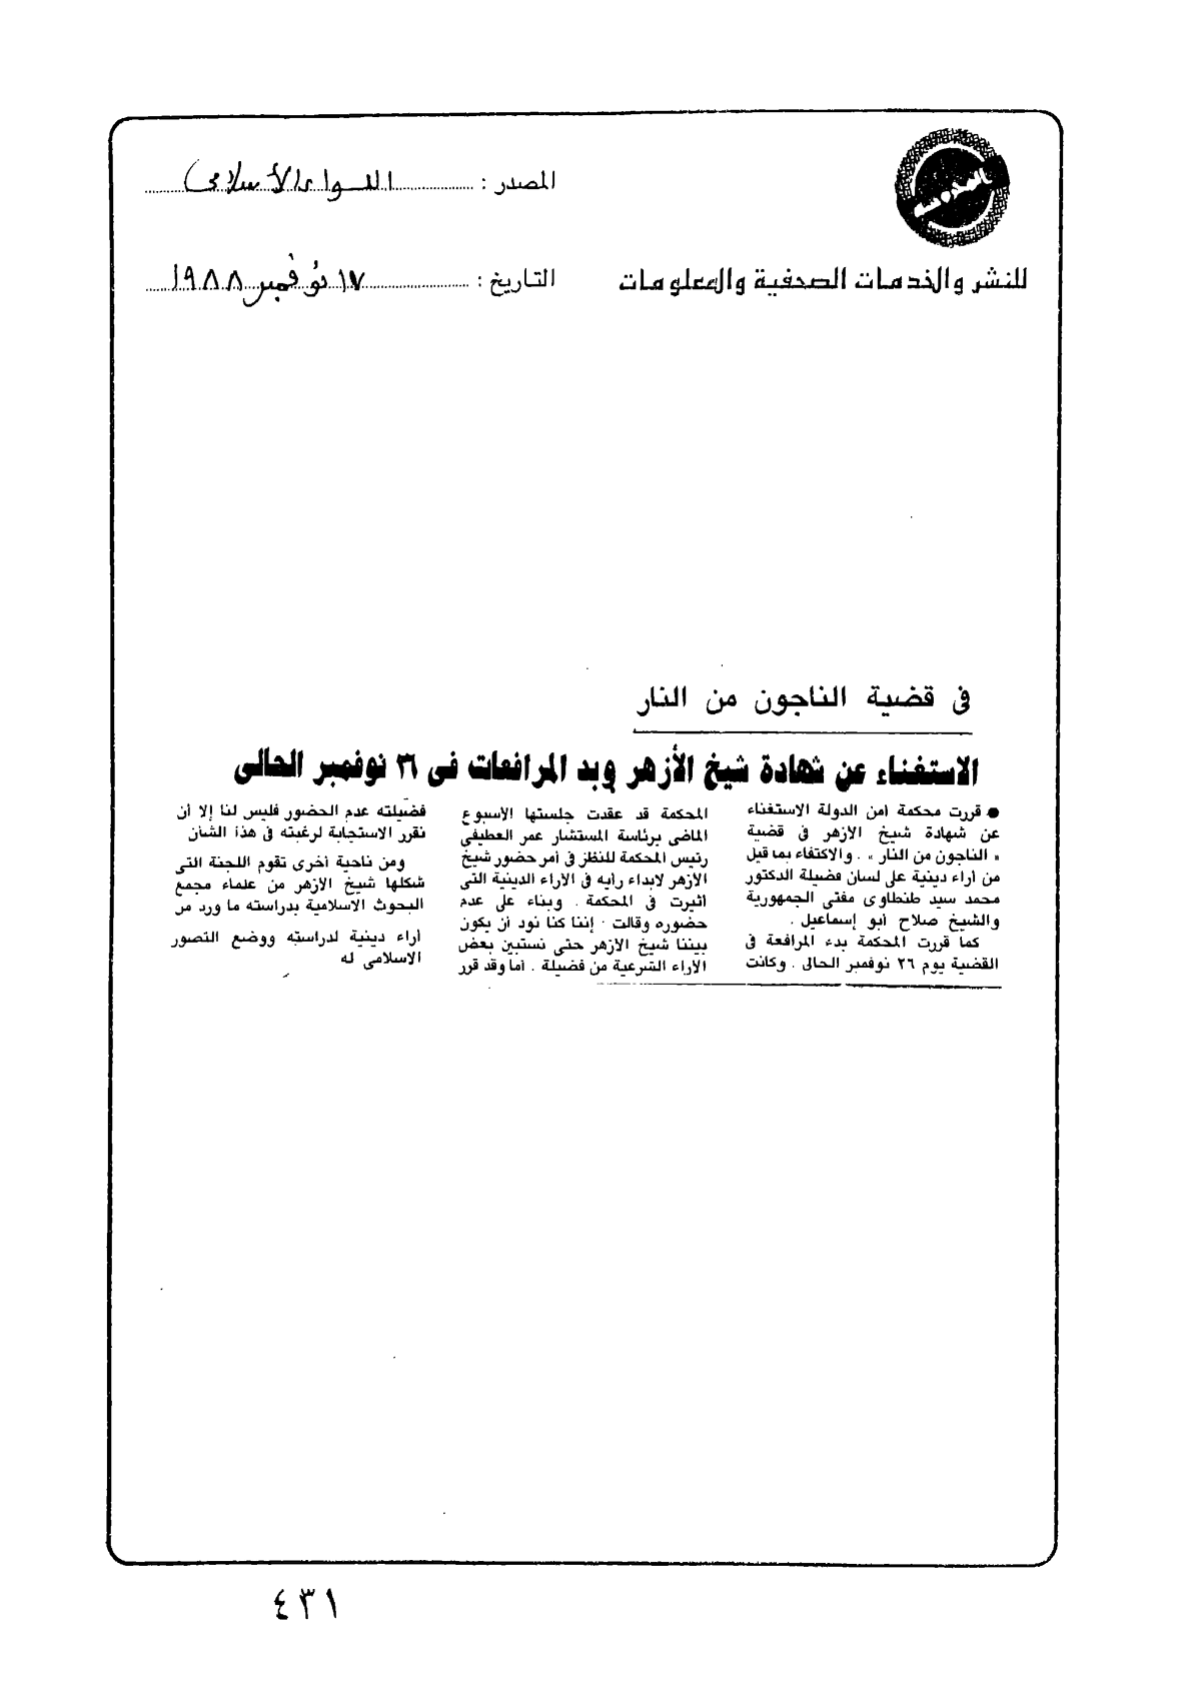 المصدر : اللواء الأسلامى
للنشر والخدمات الصحفية والمعلومات
التاريخ : ١٧ نوفمبر ١٩٨٨
فى قضية الناجون من النار
الاستغناء عن شهادة شيخ الأزهر وبد المرافعات فى ٢٦ نوفمبر الحالى
● قررت محكمة امن الدولة الاستغناء
عن شهادة شيخ الازهر فى قضية
« الناجون من النار » . والاكتفاء بما قيل
من أراء دينية على لسان فضيلة الدكتور
محمد سيد طنطاوى مفتى الجمهورية
والشيخ صلاح أبو إسماعيل .
كما قررت المحكمة بدء المرافعة فى
القضية يوم ٢٦ نوفمبر الحالى . وكانت
المحكمة قد عقدت جلستها الاسبوع
الماضى برئاسة المستشار عمر العطيفى
رئيس المحكمة للنظر فى أمر حضور شيخ
الازهر لابداء رأيه فى الاراء الدينية التى
اثيرت فى المحكمة . وبناء على عدم
حضوره وقالت · إننا كنا نود أن يكون
بيننا شيخ الازهر حتى نستبين بعض
الاراء الشرعية من فضيلة . أما وقد قرر
فضيلته عدم الحضور فليس لنا إلا أن
نقرر الاستجابة لرغبته فى هذا الشأن
ومن ناحية أخرى تقوم اللجنة التى
شكلها شيخ الازهر من علماء مجمع
البحوث الاسلامية بدراسته ما ورد من
أراء دينية لدراسته ووضع التصور
الاسلامى له
٤٣١